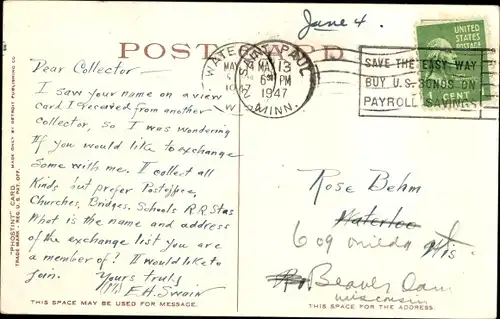 June 4.
POST CARD
Dear Collector-
I saw your name on a view
card I received from another
collector, so I was wondering
if you would like to exchange
some with me. I collect all
kinds but prefer Postoffice,
Churches, Bridges, Schools R.R Stas
What is the name and address
of the exchange list you are
a member of? I would like to
join. Yours truly
E.H. Swain
THIS SPACE MAY BE USED FOR MESSAGE.
"PHOSTINT" CARD
TRADE MARK - REG. U.S. PAT. OFF.
MADE ONLY BY DETROIT PUBLISHING CO.
SAINT PAUL
MAY 13
6 PM
1947
MINN.
SAVE THE EASY WAY
BUY U.S. BONDS ON
PAYROLL SAVINGS
UNITED
STATES
CENT
Rose Behm
Waterloo
609 Oneida Wis
Beaver Dam
Wisconsin
THIS SPACE IS FOR THE ADDRESS.